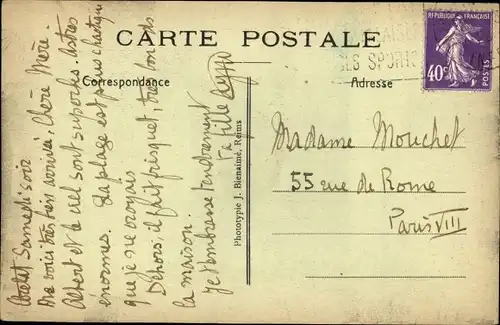 CARTE POSTALE
Correspondance
Adresse
REPUBLIQUE FRANÇAISE
40c
POSTES
SES SPORTS
Samedi soir
Me voici très bien arrivée, Chère Mère.
Albert et le ciel sont superbes. Astres
énormes. La plage est plus chaotique
que je ne croyais
Dehors, il fait frisquet, très bon
la maison.
Je t'embrasse tendrement
Ta fille
Phototypie J. Bienaimé, Reims
Madame Mouchet
55 rue de Rome
Paris VIII